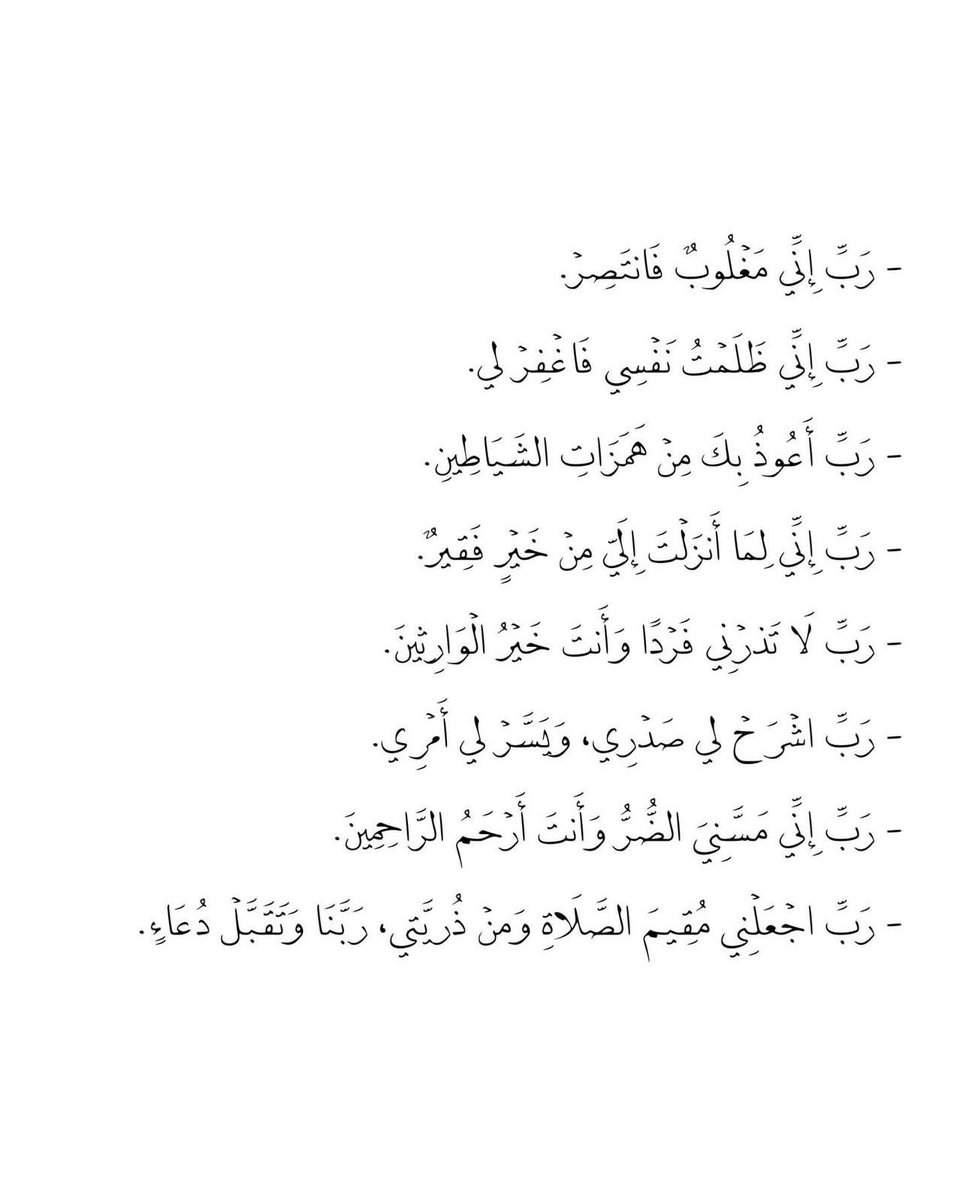 - رَبِّ إِنِّي مَغْلُوبٌ فَانتَصِرْ.
- رَبِّ إِنِّي ظَلَمْتُ نَفْسِي فَاغْفِرْ لِي.
- رَبِّ أَعُوذُ بِكَ مِنْ هَمَزَاتِ الشَّيَاطِينِ.
- رَبِّ إِنِّي لِمَا أَنزَلْتَ إِلَيَّ مِنْ خَيْرٍ فَقِيرٌ.
- رَبِّ لَا تَذَرْنِي فَرْدًا وَأَنتَ خَيْرُ الْوَارِثِينَ.
- رَبِّ اشْرَحْ لِي صَدْرِي، وَيَسَّرْ لِي أَمْرِي.
- رَبِّ إِنِّي مَسَّنِيَ الضُّرُّ وَأَنتَ أَرْحَمُ الرَّاحِمِينَ.
- رَبِّ اجْعَلْنِي مُقِيمَ الصَّلَاةِ وَمَنْ ذُرِّيَّتِي، رَبَّنَا وَتَقَبَّلْ دُعَاءٍ.